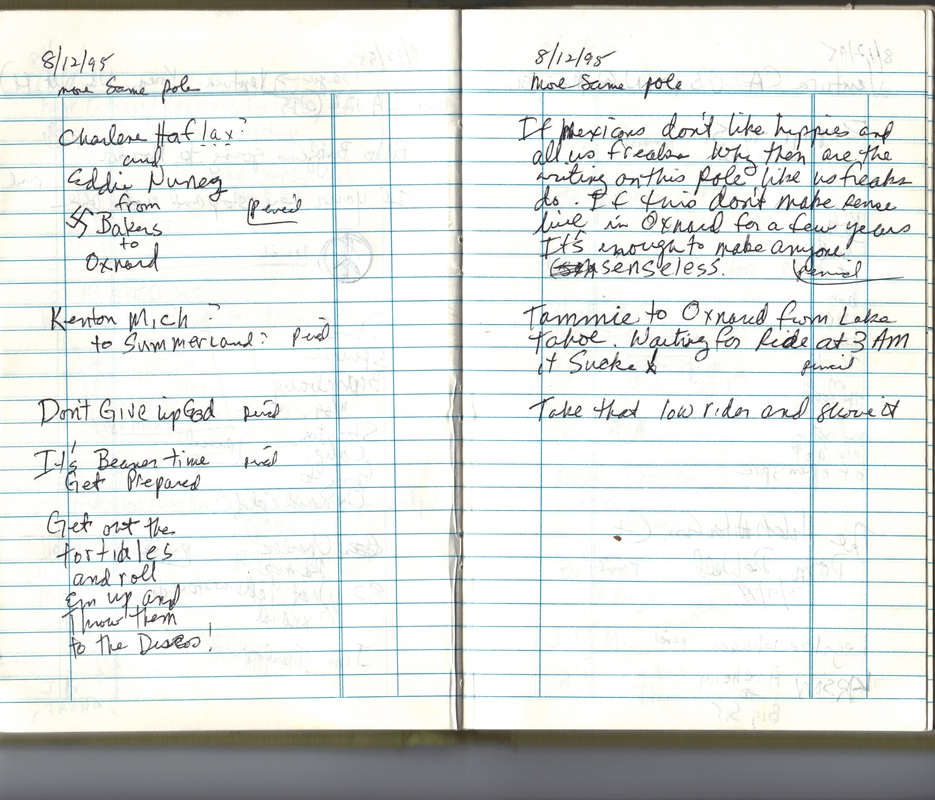 8/12/95
more Same pole
Charlene Haflax?
and
Eddie Nunez
from
Bakers
to
Oxnard
Pencil
Kenton Mich ?
to Summerland? Pencil
Don't Give up God pencil
It's Beaner time pencil
Get Prepared
Get out the
tortialles
and roll
Em up and
Throw them
to the Discos!
8/12/95
more Same pole
If Mexicans don't like hippies and
all us freaks Why then are the
writing on this Pole like us freaks
do. If this don't make sense
live in Oxnard for a few years
It's enough to make anyone
senseless.
Pencil
Tammie to Oxnard from Lake
Tahoe. Waiting for Ride at 3 AM
it Sucks
pencil
Take that low rider and shove it